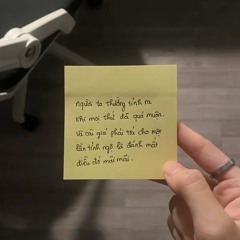 Người ta thường tỉnh ra
khi mọi thứ đã quá muộn.
Và cái giá phải trả cho một
lần tỉnh ngộ là đánh mất
điều đó mãi mãi.